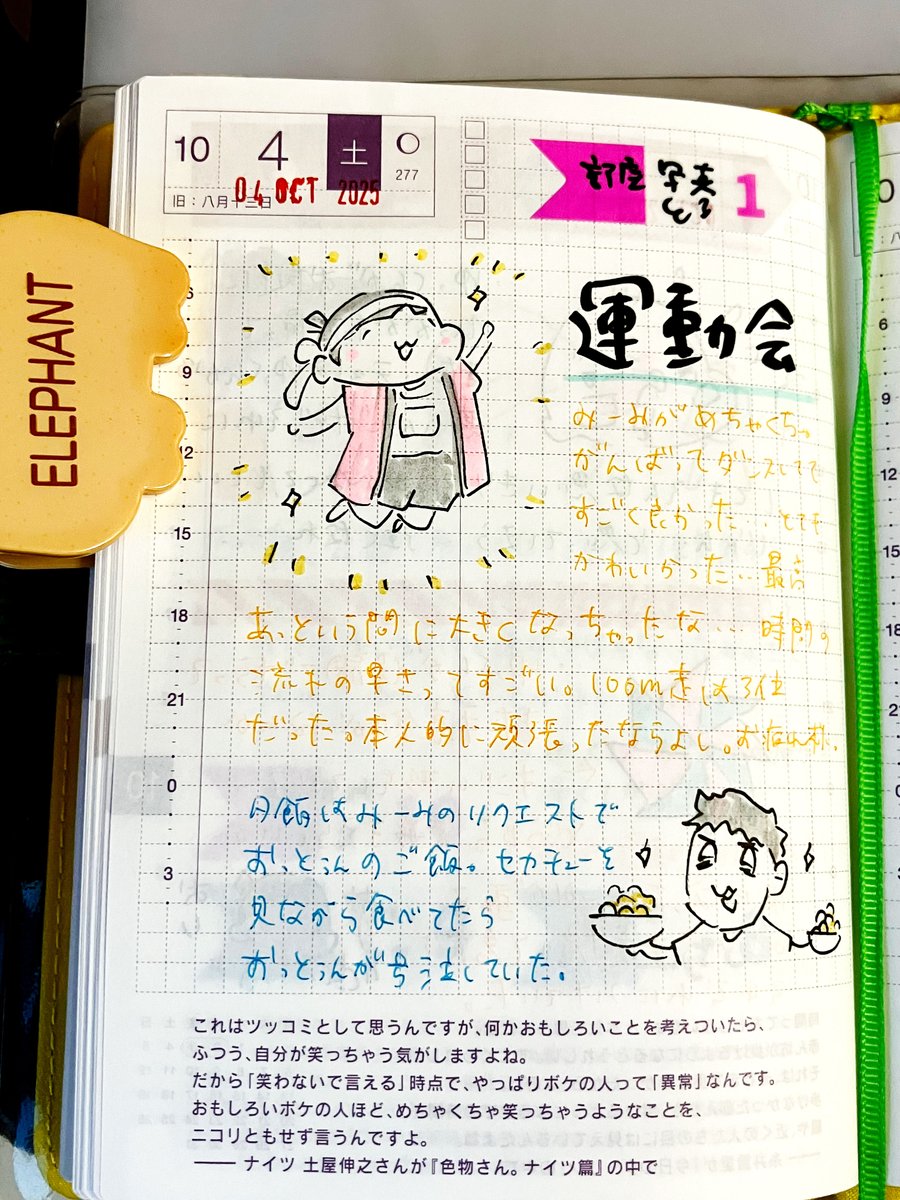 ELEPHANT
10 4 土 ○
277
旧:八月十三日
04 OCT 2025
部屋 写真とる 1
運動会
みーみがめちゃくちゃ
がんばってダンスしてて
すごく良かった…とても
かわいかった…最高
あっという間に大きくなっちゃったな…時間の
流れの早さってすごい。100m走は3位
だった。本人的に頑張ったならよし。お疲れ様。
夕飯はみーみのリクエストで
おっとぅんのご飯。セカチューを
見ながら食べてたら
おっとぅんが号泣していた。
6
9
12
15
18
21
0
3
これはツッコミとして思うんですが、何かおもしろいことを考えついたら、
ふつう、自分が笑っちゃう気がしますよね。
だから「笑わないで言える」時点で、やっぱりボケの人って「異常」なんです。
おもしろいボケの人ほど、めちゃくちゃ笑っちゃうようなことを、
ニコリともせず言うんですよ。
—— ナイツ 土屋伸之さんが『色物さん。ナイツ篇』の中で
6
9
12
15
18
21
0